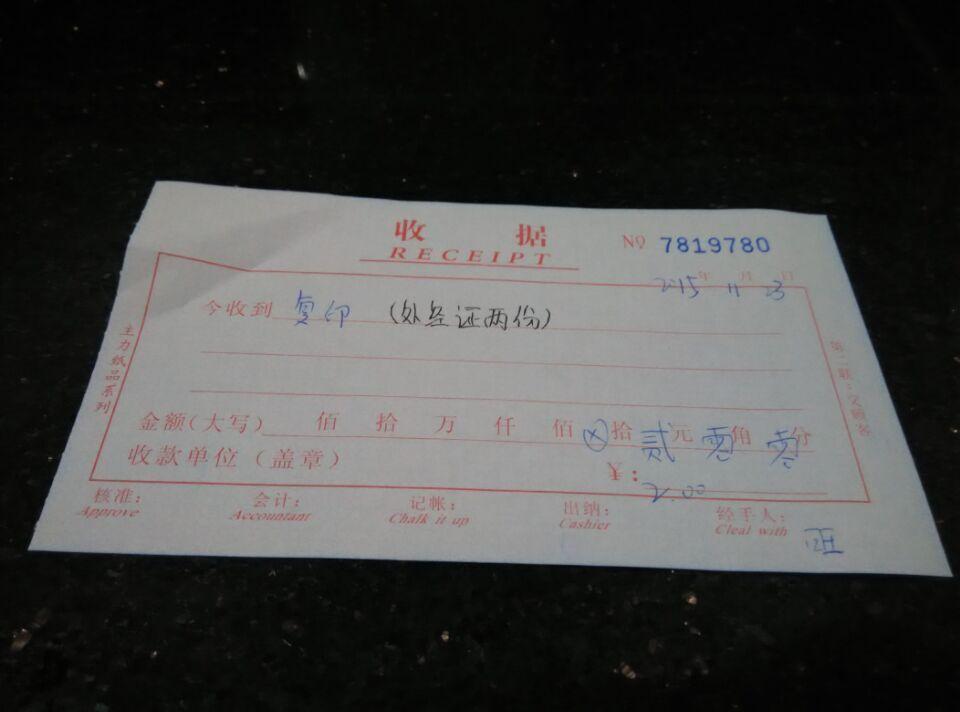 收 据
RECEIPT
№ 7819780
2015年 11月 23日
今收到 复印 (处至证两份)
金额(大写) 佰 拾 万 仟 佰 ⊗拾 贰元 零角 零分
收款单位(盖章)
¥: 2.00
核准: 会计: 记帐: 出纳: 经手人:
Approve Accountant Chalk it up Cashier Cleal with
主力纸品系列
第二联:交顾客